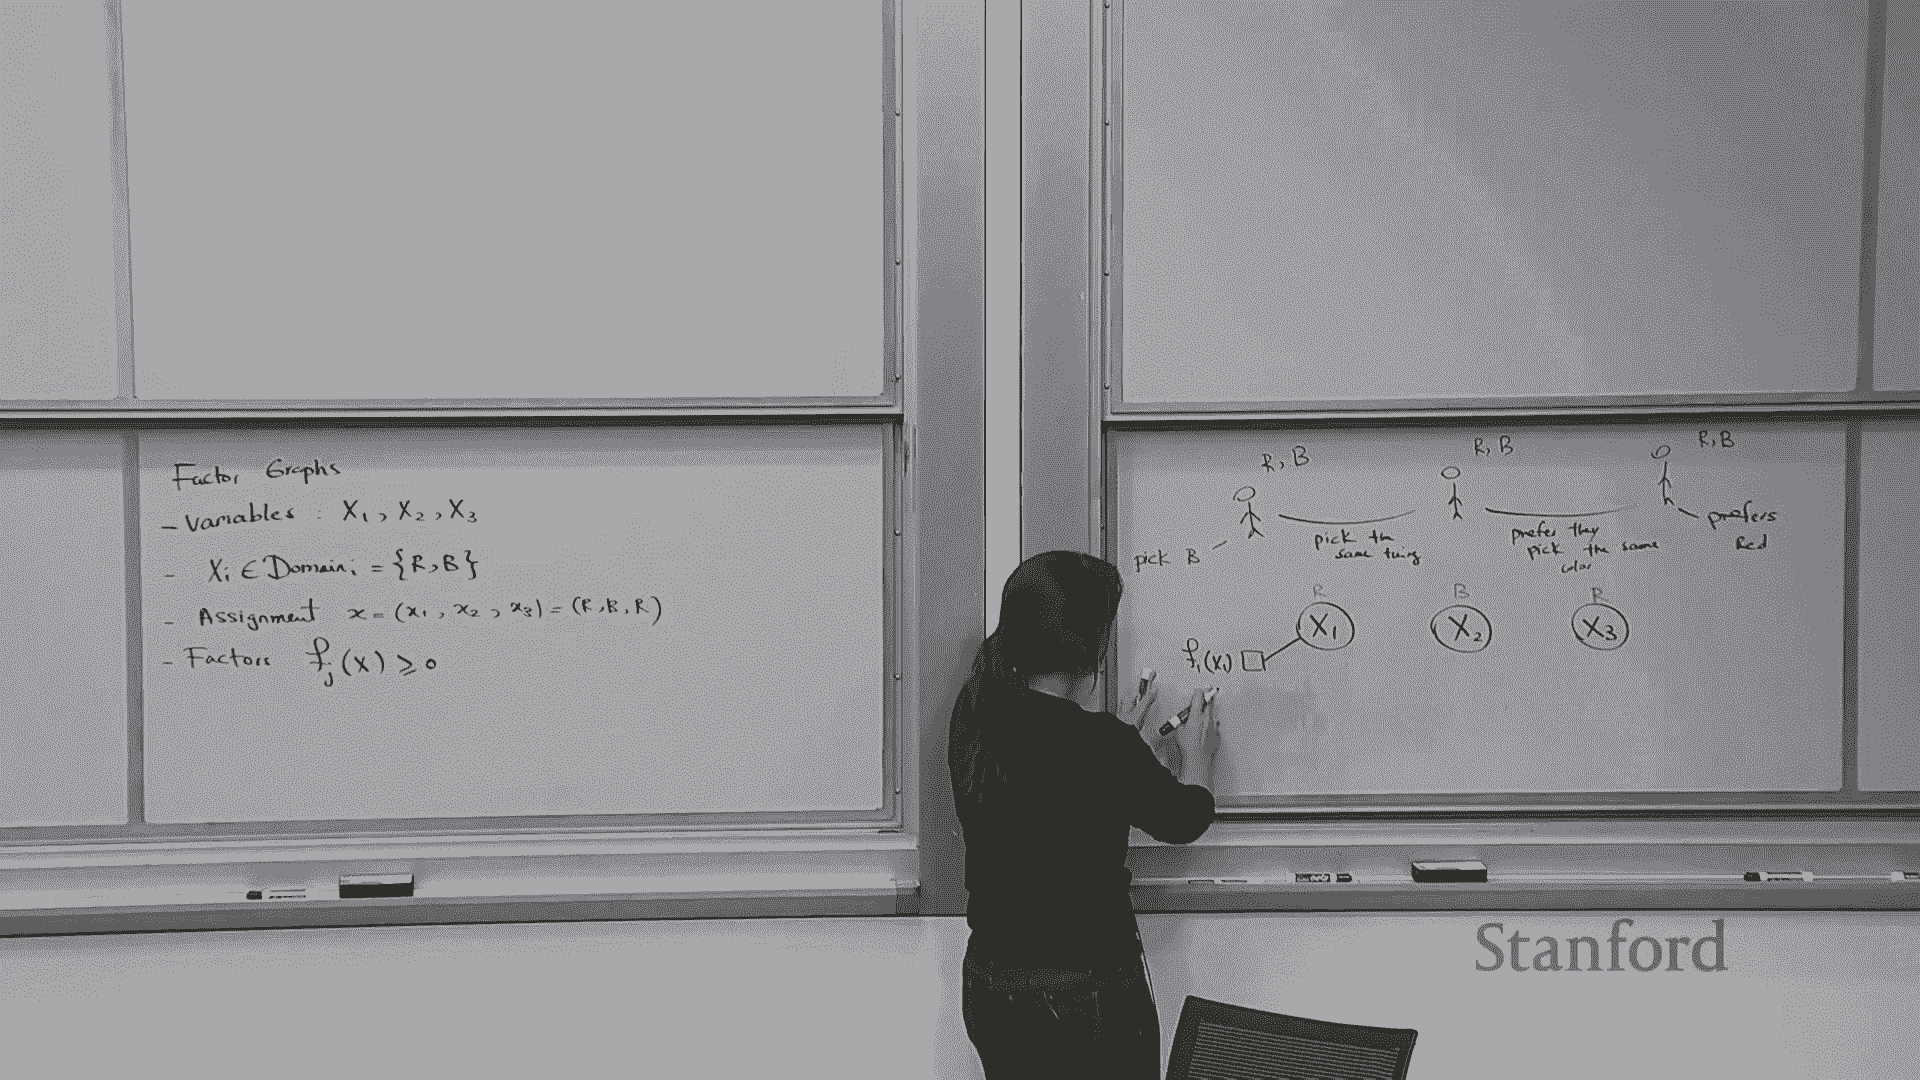 Factor Graphs
- Variables : X₁, X₂, X₃
- Xᵢ ∈ Domainᵢ = {R,B}
- Assignment x = (x₁, x₂, x₃) = (R,B,R)
- Factors fⱼ(x) ≥ 0
R,B R,B R,B
pick B
pick the
same thing
prefer they
pick the same
color
prefers
Red
R B R
X₁ X₂ X₃
f₁(x₁)
Stanford